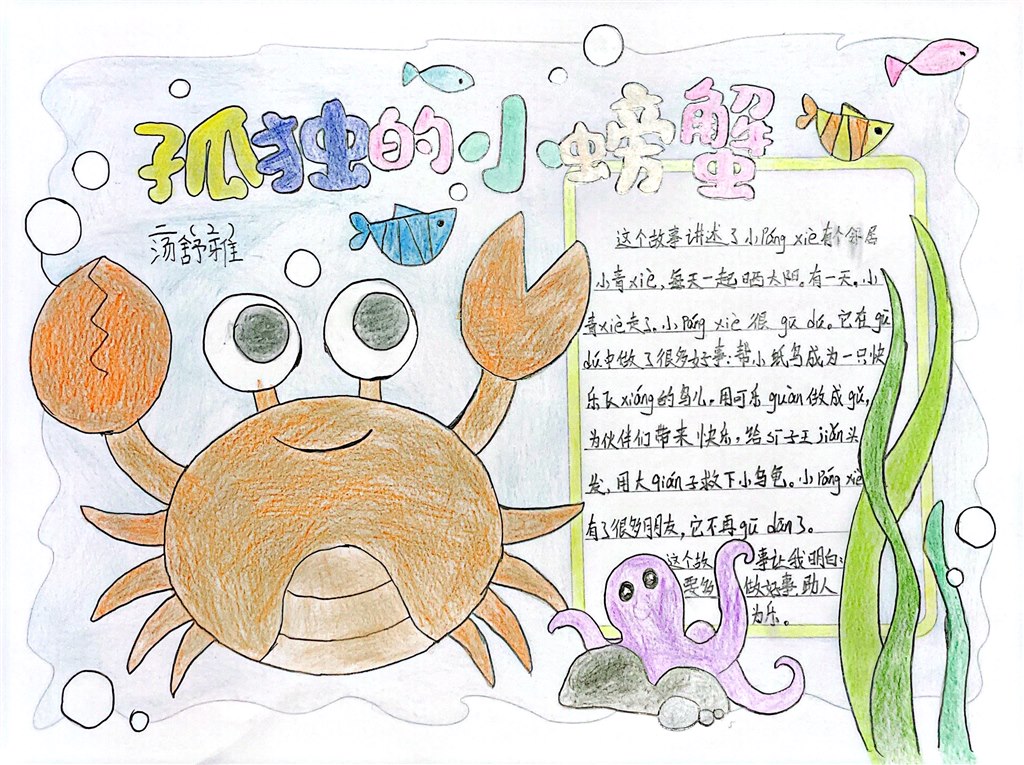 孤独的小螃蟹
二(2)
汤舒雅
这个故事讲述了小páng xiè有个邻居
小青xiè，每天一起晒太阳。有一天，小
青xiè走了，小páng xiè 很 gū dú。它在gū
dú中做了很多好事：帮小纸鸟成为一只快
乐飞xiáng的鸟儿。用可乐guàn做成gǔ，
为伙伴们带来快乐，给sī子王jiǎn头
发，用大qián子救下小乌龟。小páng xiè
有了很多朋友，它不再gū dān了。
这个故事让我明白：
要多做好事，助人
为乐。